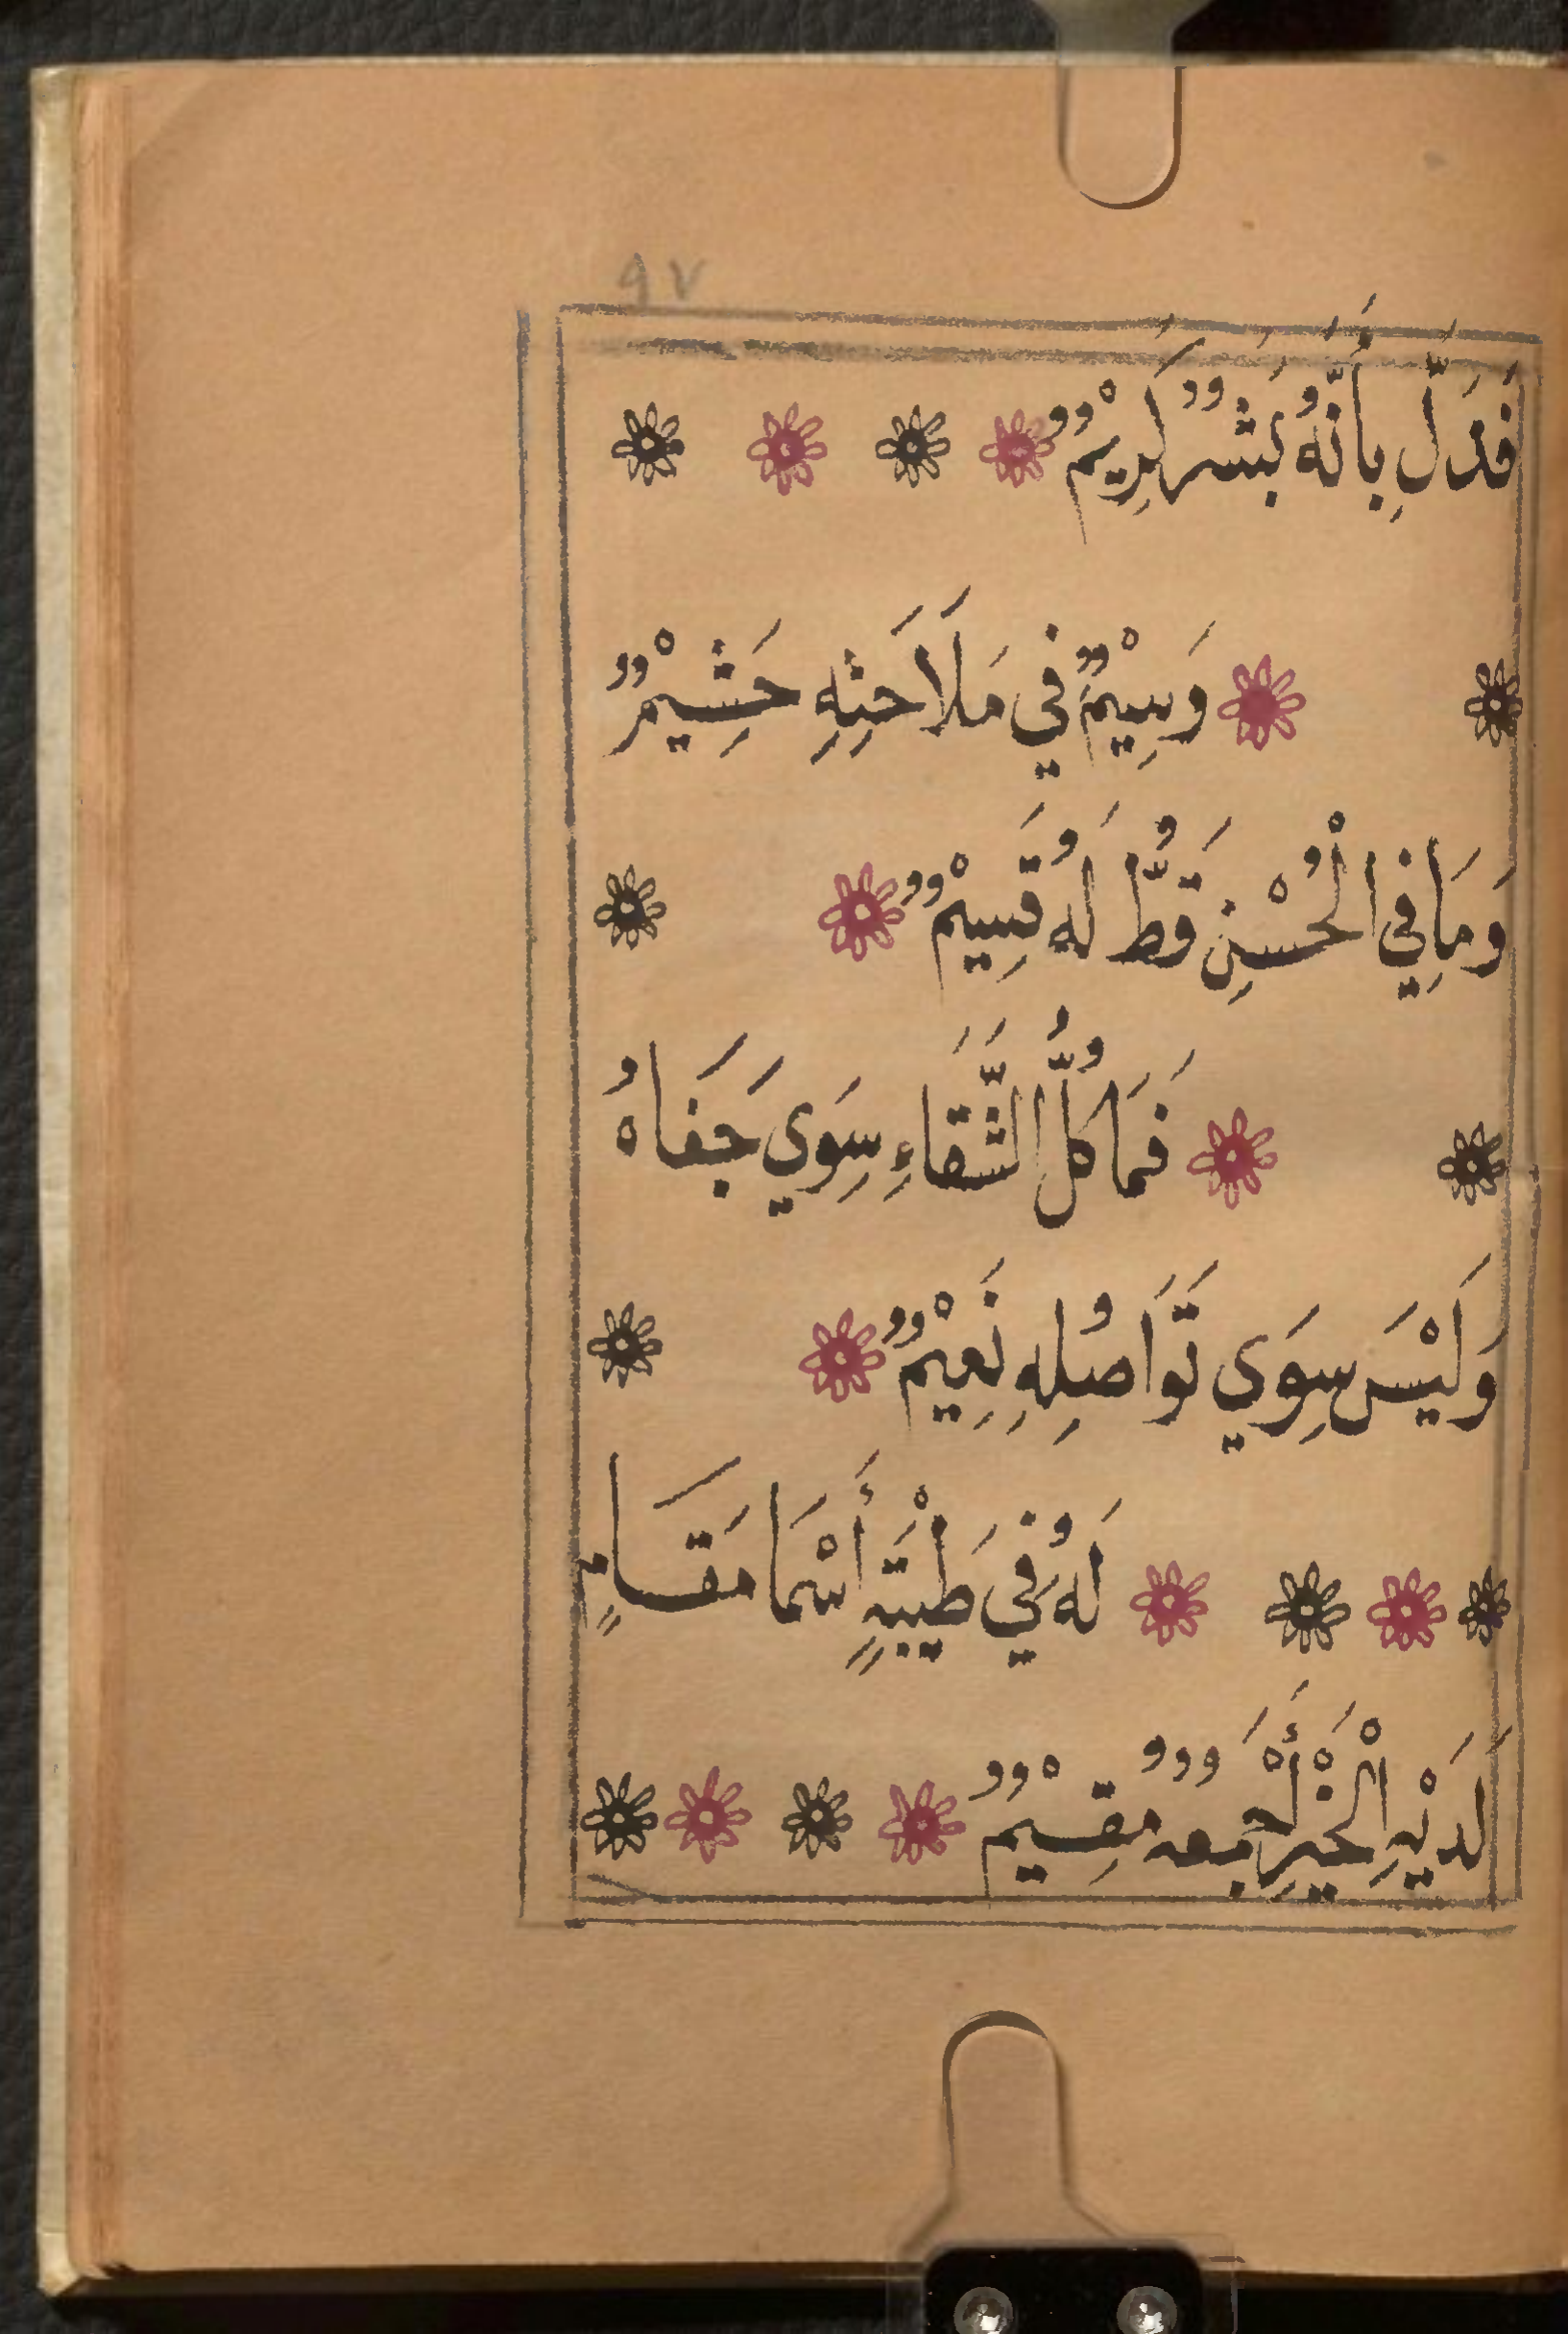 ٩٧
فَدَلَّ بِأَنَّهُ بَشَرٌ كَرِيْمٌ
وَسِيْمٌ فِي مَلَاحَتِهِ حَشِيْمٌ
وَمَا فِي الْحُسْنِ قَطُّ لَهُ قَسِيْمٌ
فَمَا كُلُّ الشَّقَاءِ سِوَي جَفَاهُ
وَلَيْسَ سِوَي تَوَاصُلِهِ نَعِيْمٌ
لَهُ فِي طَيْبَةٍ أَسْمَا مَقَامٍ
لَدَيْهِ الْخَيْرُ أَجْمَعُهُ مُقِيْمٌ